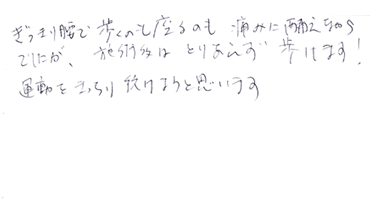 ぎっくり腰で歩くのも座るのも 痛みに耐えながら
でしたが、施術後は とりあえず 歩けます!
運動をきっちり続けようと思います